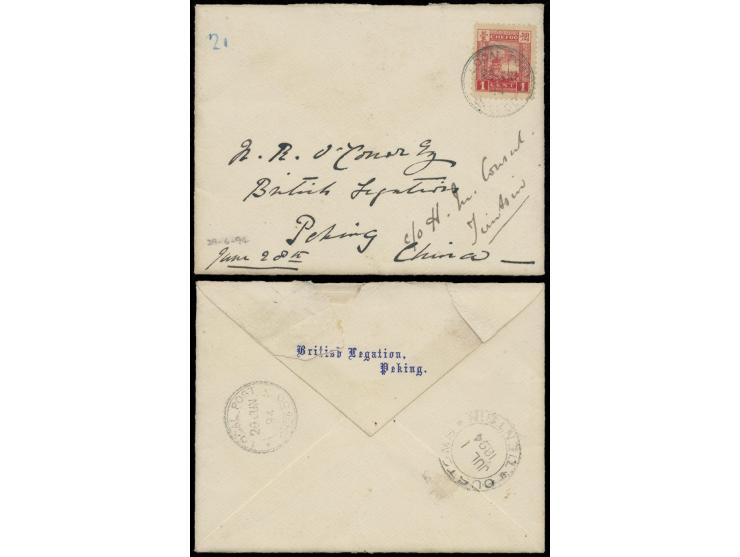 21
CHEFOO
1 CENT 1
LOCAL
N. R. O'Conor Esq
British Legation
Peking
China
c/o H. M. Consul
Tientsin
29-6-94
June 28th
British Legation,
Peking.
LOCAL POST
29 JUN
94
CUSTOMS TIENTSIN
JUL 1
1894